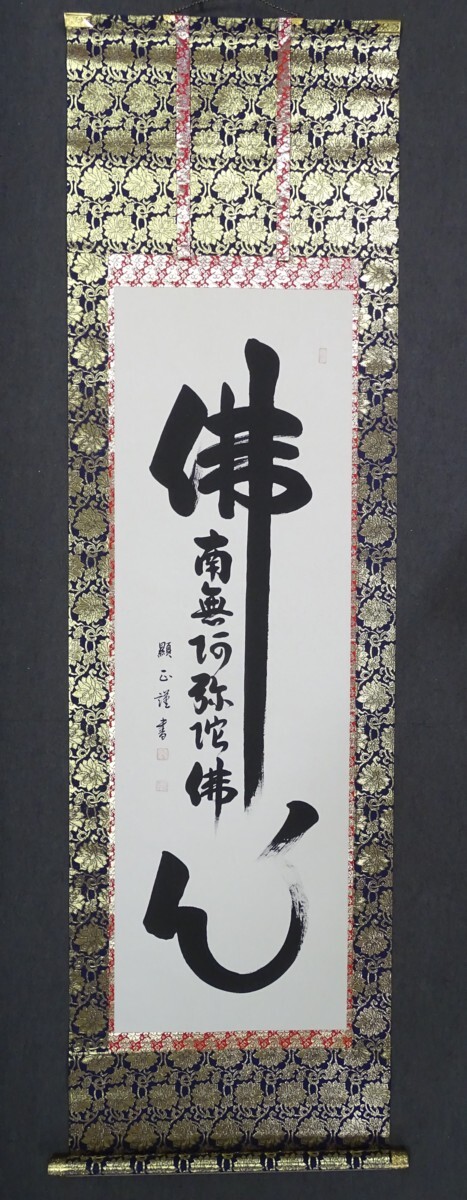 佛心
南無阿弥陀佛
顯正謹書